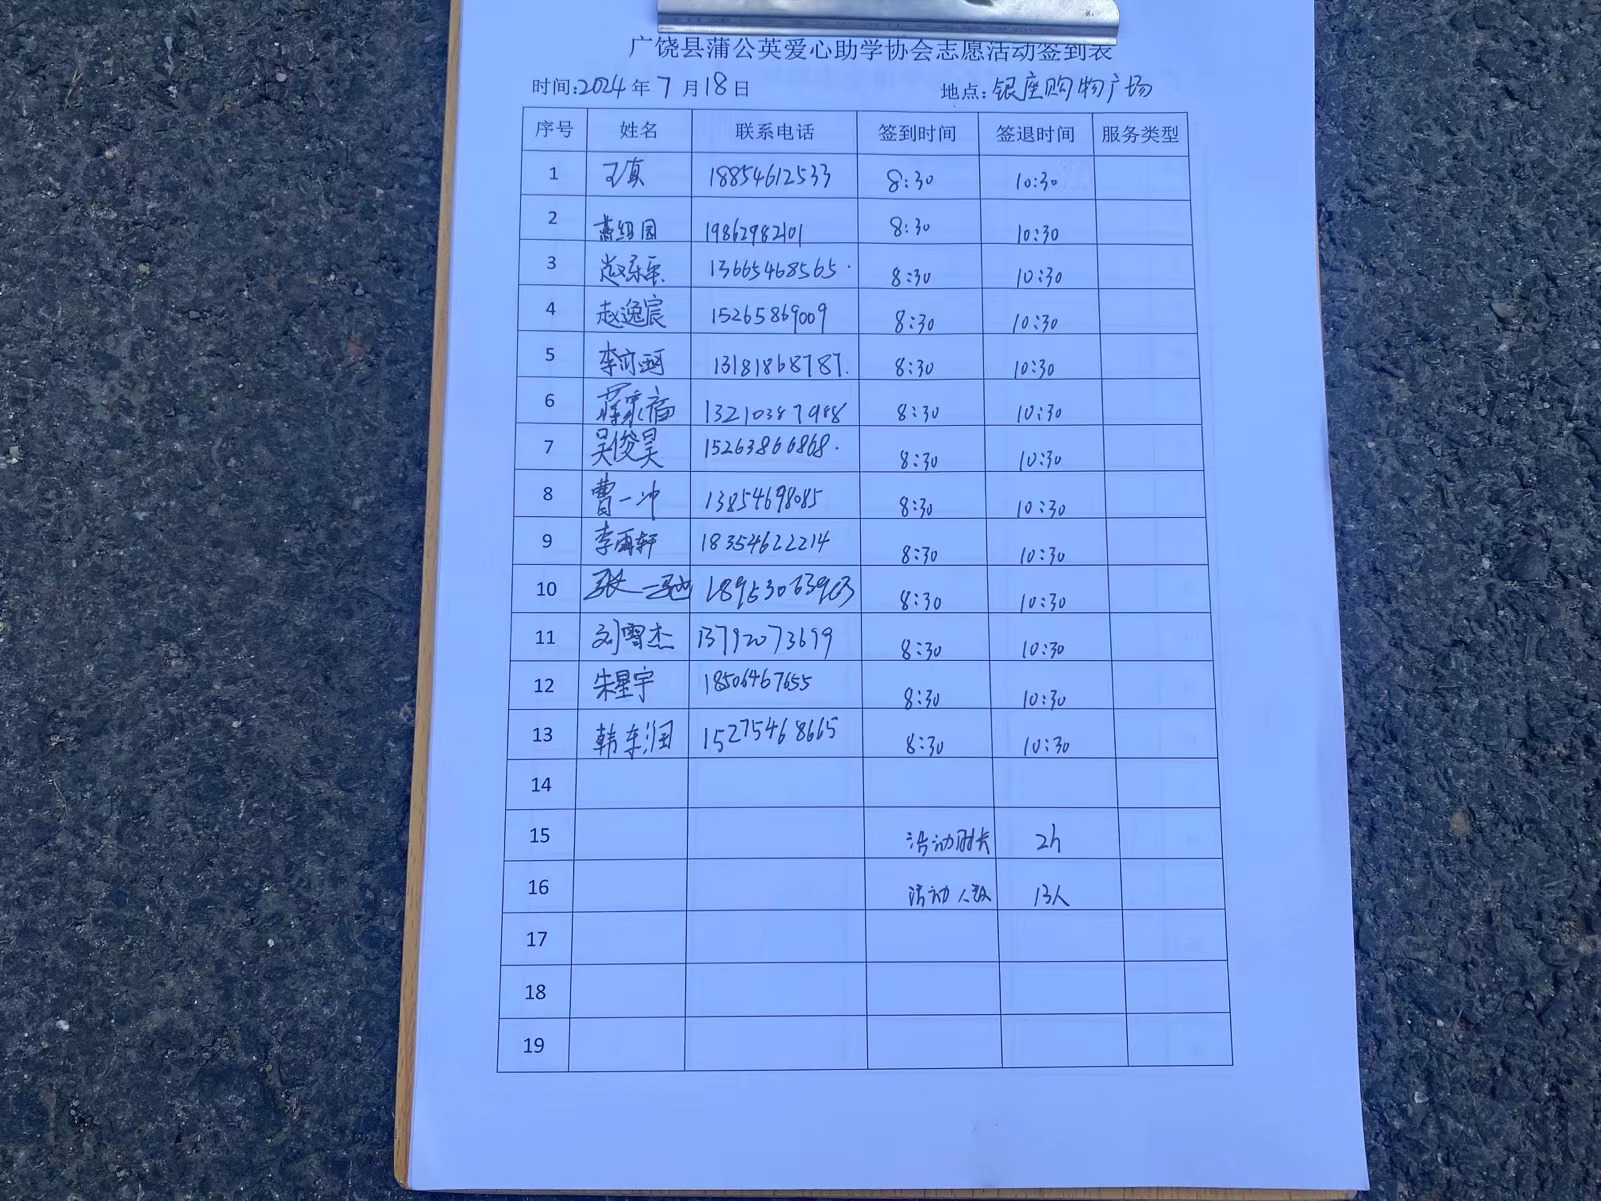 广饶县蒲公英爱心助学协会志愿活动签到表
时间:2024年7月18日 地点:银座购物广场
序号 姓名 联系电话 签到时间 签退时间 服务类型
1 王真 18854612533 8:30 10:30
2 19862982101 8:30 10:30
3 13665468565 8:30 10:30
4 赵逸宸 15265869009 8:30 10:30
5 13181868787 8:30 10:30
6 13210387988 8:30 10:30
7 吴俊昊 15263866868 8:30 10:30
8 曹一冲 13854698085 8:30 10:30
9 李雨轩 18354622214 8:30 10:30
10 张一驰 18953063903 8:30 10:30
11 刘雪杰 13792073699 8:30 10:30
12 朱星宇 18506467655 8:30 10:30
13 韩东润 15275468665 8:30 10:30
14
15 活动时长 2h
16 活动人数 13人
17
18
19